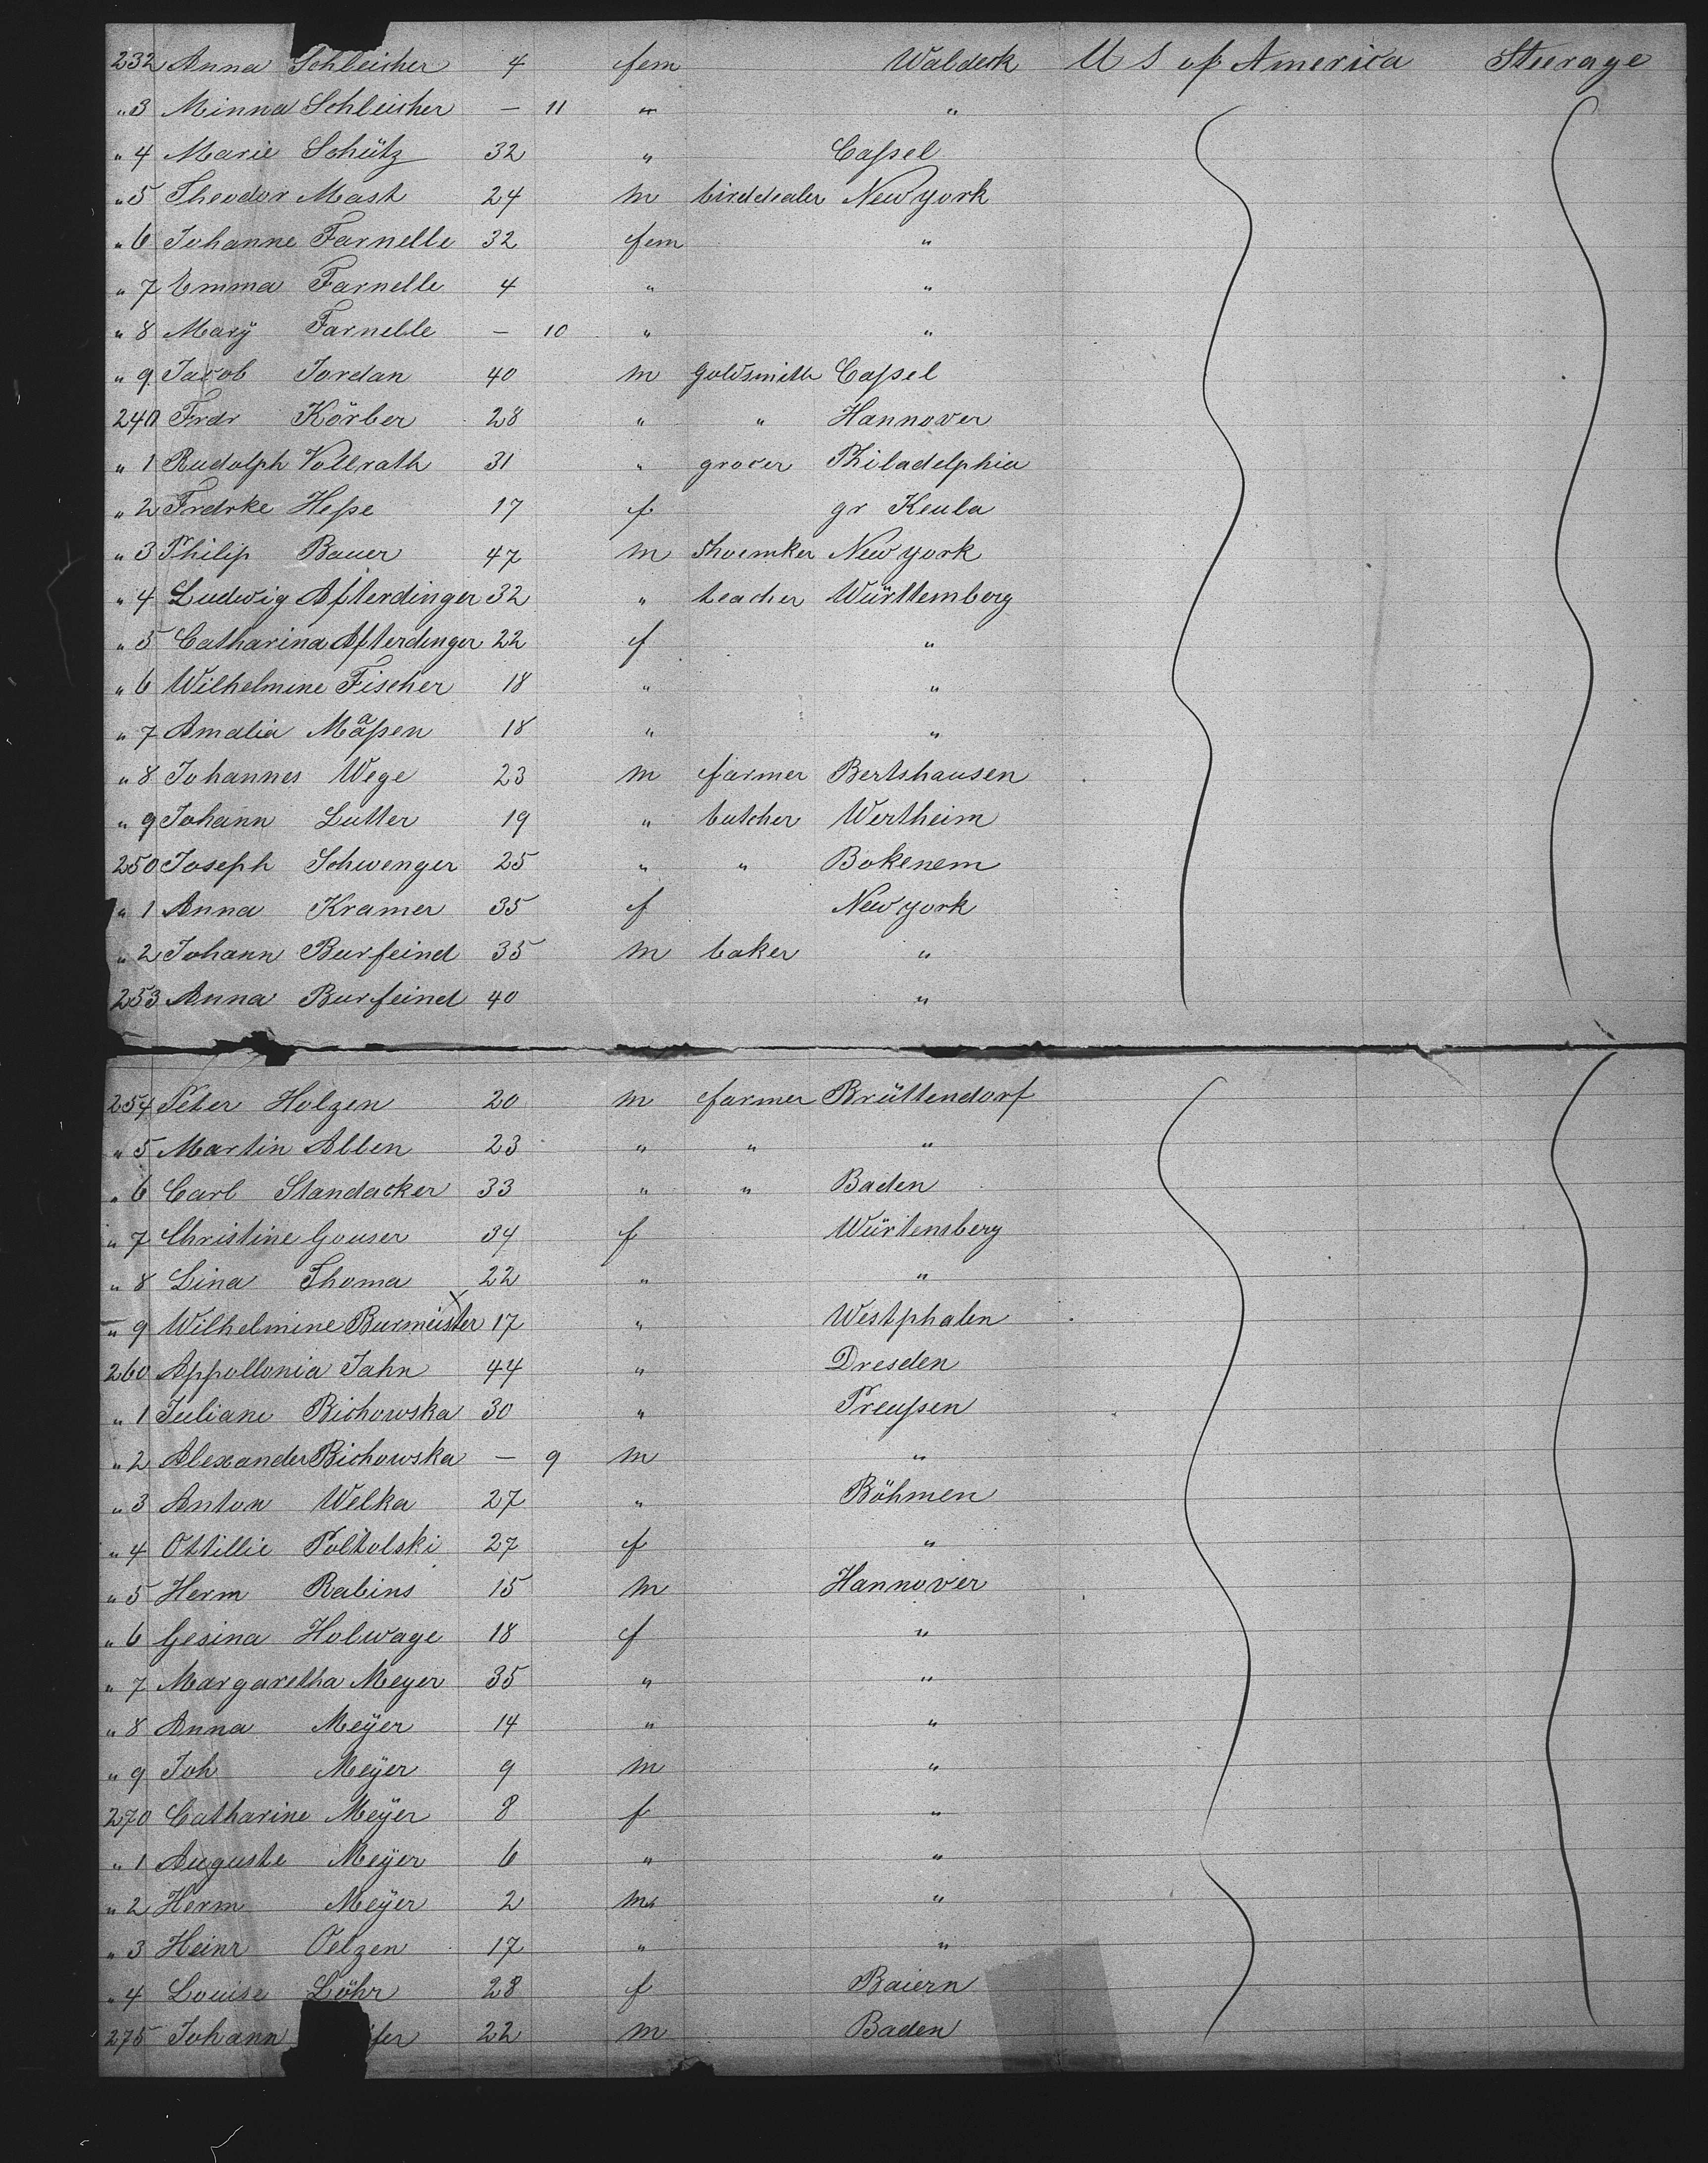 232 Anna Schleicher 4 fem Waldeck U S of America Steerage
"3 Minna Schleicher — 11 " "
"4 Marie Schütz 32 " Caſsel
"5 Theodor Mast 24 m birddealer New york
"6 Johanne Farnelle 32 fem "
"7 Emma Farnelle 4 " "
"8 Marÿ Farnelle — 10 " "
"9 Jacob Jordan 40 m goldsmith Caſsel
240 Frdr Körber 28 " " Hannover
"1 Rudolph Vollrath 31 " grocer Philadelphia
"2 Frdrke Heſse 17 f gr Keula
"3 Philip Bauer 47 m Shoemker New york
"4 Ludwig Afterdinger 32 " teacher Württemberg
"5 Catharina Afterdinger 22 f "
"6 Wilhelmine Fischer 18 " "
"7 Amalia Maaſsen 18 " "
"8 Johannes Wege 23 m farmer Bertshausen
"9 Johann Lutter 19 " butcher Wertheim
250 Joseph Schwenger 25 " " Bokenem
"1 Anna Kramer 35 f New york
"2 Johann Burfeind 35 m baker "
253 Anna Burfeind 40 "
254 Peter Holzen 20 m farmer Brüttendorf
"5 Martin Alben 23 " " "
"6 Carl Standacker 33 " " Baden
"7 Christine Gouser 34 f Würtemberg
"8 Lina Thoma 22 " "
"9 Wilhelmine Burmeister 17 " Westphalen
260 Appollonia Jahn 44 " Dresden
"1 Juliane Bichowska 30 " Preuſsen
"2 Alexander Bichowska — 9 m "
"3 Anton Welka 27 " Böhmen
"4 Ottillie Poltolski 27 f "
"5 Herm Rabins 15 m Hannover
"6 Gesina Holwage 18 f "
"7 Margaretha Meyer 35 " "
"8 Anna Meÿer 14 " "
"9 Joh Meÿer 9 m "
270 Catharine Meÿer 8 f "
"1 Auguste Meÿer 6 " "
"2 Herm Meÿer 2 m "
"3 Heinr Oelzen 17 " "
"4 Louise Löhr 28 f Baiern
275 Johann 22 m Baden